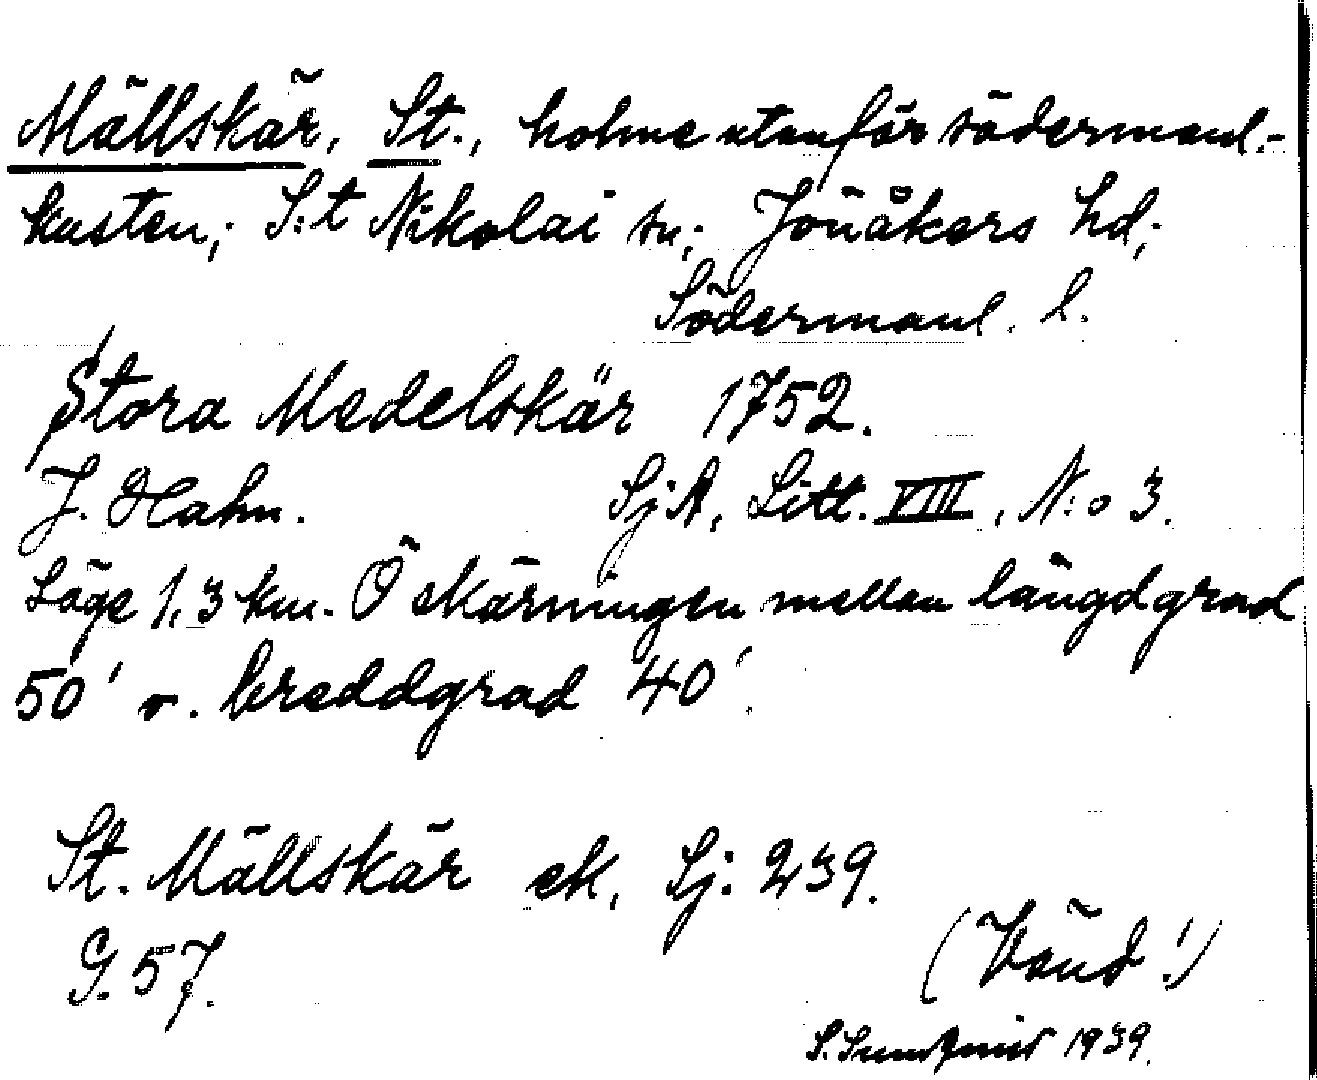 Mällskär, St., holme utanför södermanl.-
kusten; S:t Nikolai sn; Jönåkers hd;
Södermanl. l.
Stora Medelskär 1752.
J. Hahn. SjA, Litt. VIII, N:o 3.
Läge 1,3 km. Ö skärningen mellan längdgrad
50' o. breddgrad 40'.
St. Mällskär ek, Sj. 239.
G. 57.
(Vänd!)
S. 1939.